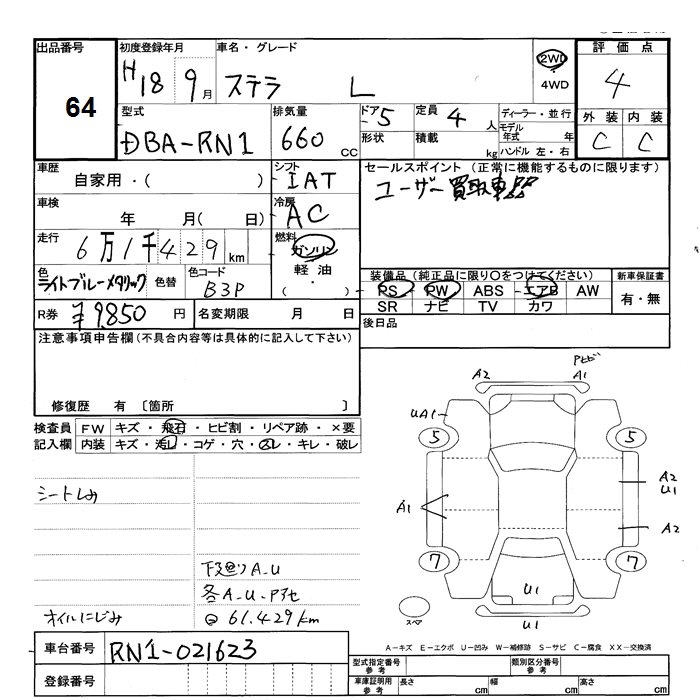 出品番号 初度登録年月 車名・グレード 評価点
64
H18 9月 ステラ L 2WD 4WD 4
型式 排気量 ドア5 定員 4人 ディーラー・並行 外装 内装
DBA-RN1 660cc 形状 積載 kg モデル年式 年 C C
ハンドル 左・右
車歴 シフト セールスポイント (正常に機能するものに限ります)
自家用・( ) IAT ユーザー買取車
車検 冷房
年 月( 日) AC
走行 燃料
6万1千429km ガソリン
軽油
・( )
色 色替 色コード 装備品 (純正品に限り○をつけてください) 新車保証書
ライトブルーメタリック B3P PS PW ABS エアB AW 有・無
SR ナビ TV カワ
R券 ¥9,850円 名変期限 月 日 後日品
注意事項申告欄(不具合内容等は具体的に記入して下さい)
修復歴 有 〔箇所 〕
検査員 FW キズ・飛石・ヒビ割・リペア跡・×要
記入欄 内装 キズ・汚レ・コゲ・穴・スレ・キレ・破レ
Pヒビ
A2 A1
UA1
5 5
A1
A2
U1
A2
7 7
U1
スペア U1
シートしみ
下廻りA-U
各A-U-Pアセ
オイルにじみ @ 61.429km
A-キズ E-エクボ U-凹み W-補修跡 S-サビ C-腐食 XX-交換済
車台番号 RN1-021623
登録番号
型式指定番号 参考 類別区分番号 参考
車庫証明用 参考 長さ cm 幅 cm 高さ cm